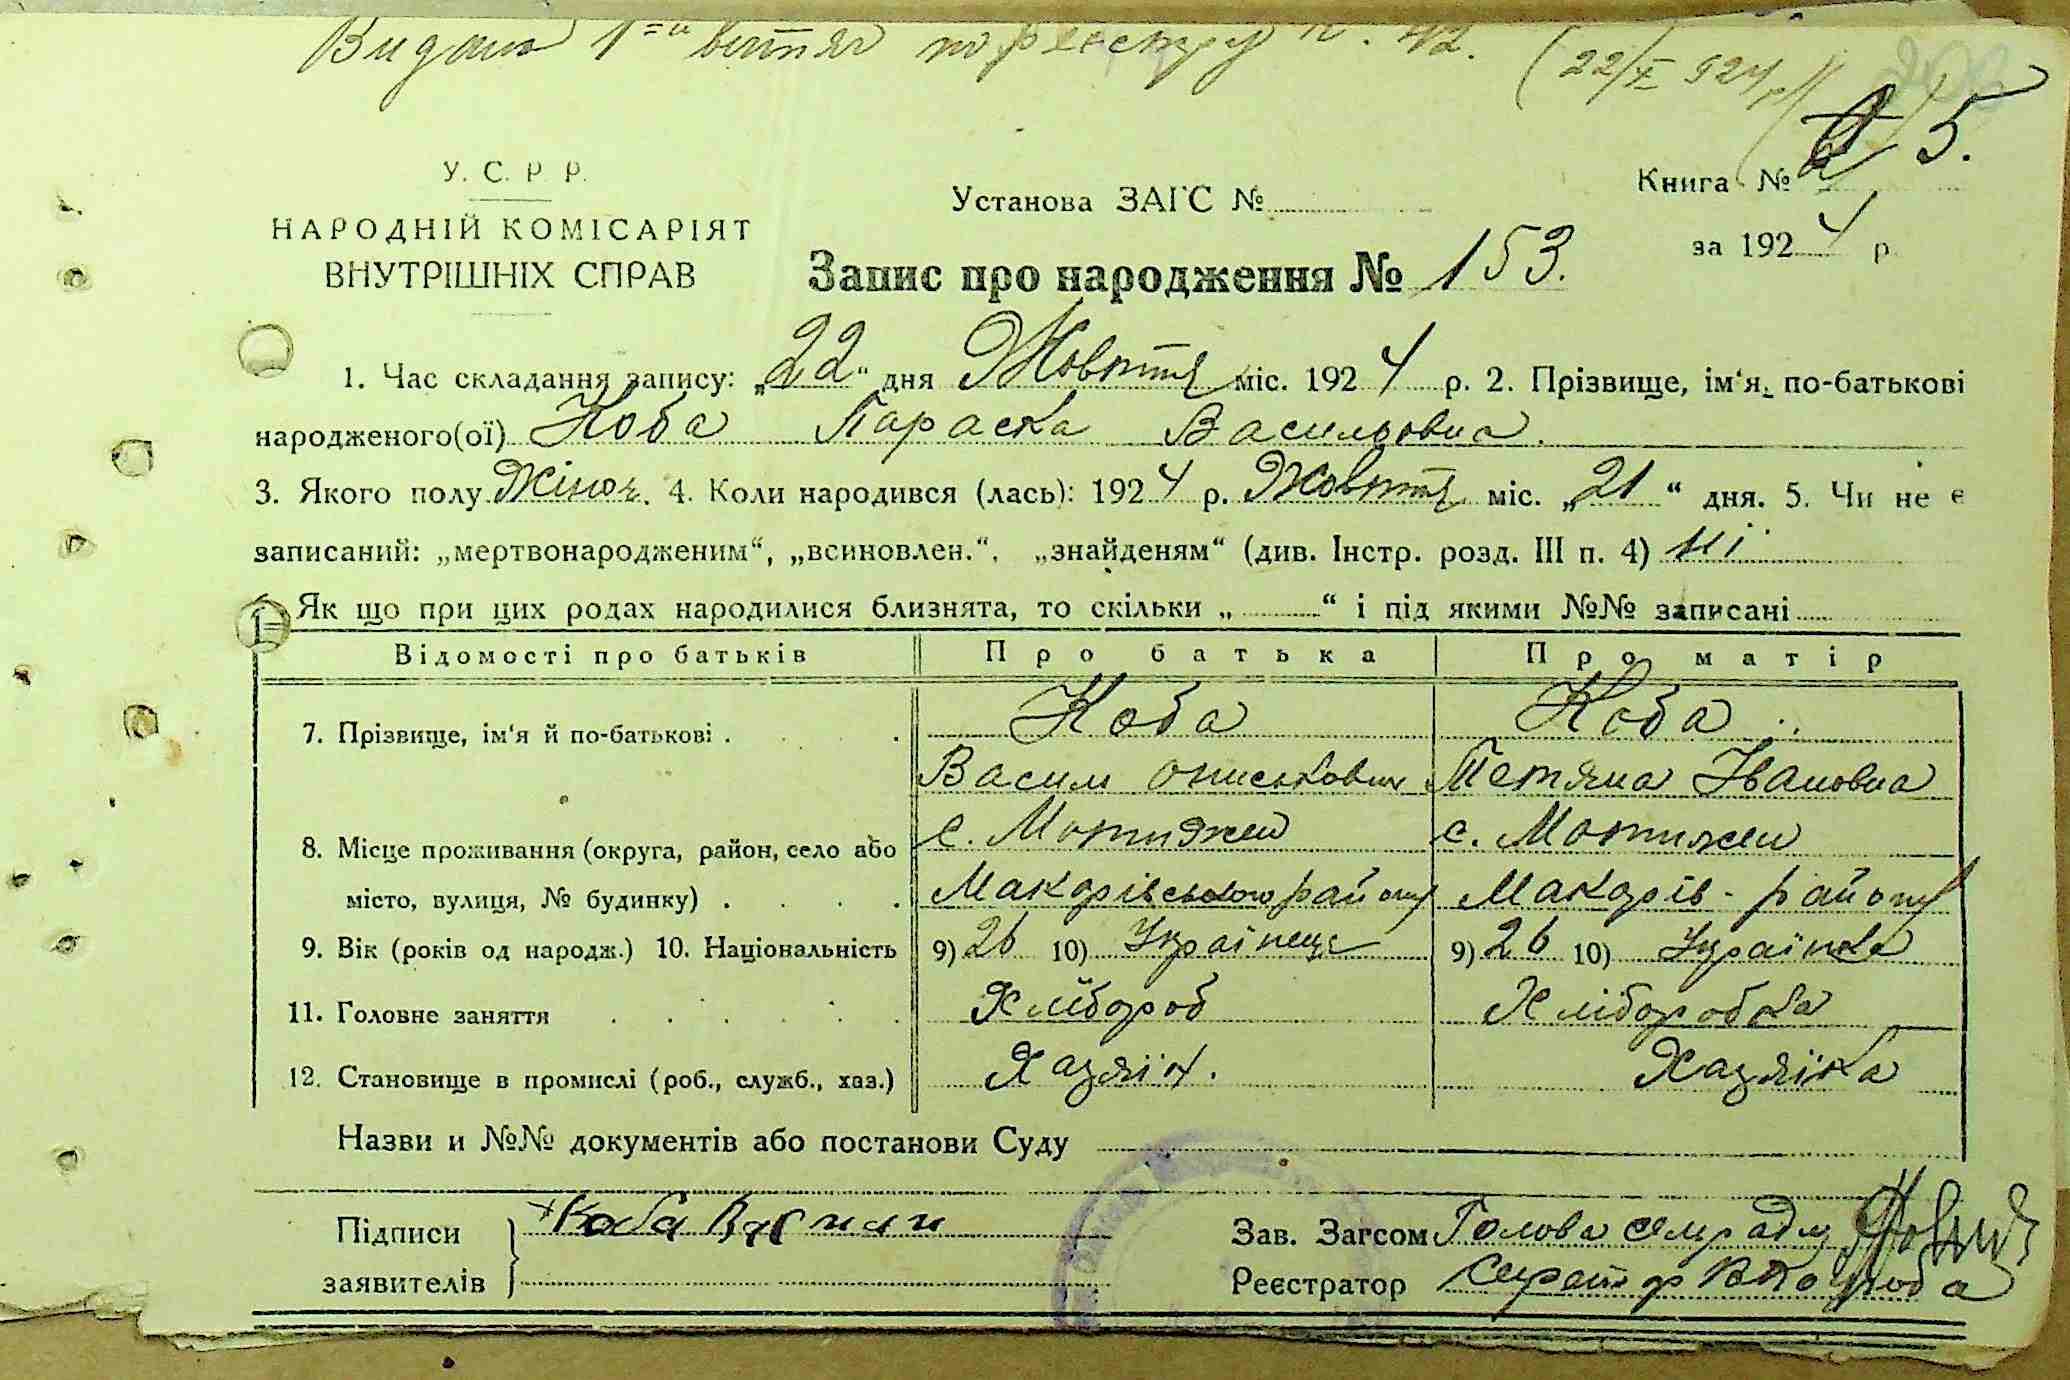 Видано 1=й витяг по реєстру N. 42. (22/X 924 р.)
У. С. Р. Р.
НАРОДНІЙ КОМІСАРІЯТ
ВНУТРІШНІХ СПРАВ
Установа ЗАГС №
Книга № 5.
за 1924 р.
Запис про народження № 153.
1. Час складання запису: „22“ дня Жовтня міс. 1924 р. 2. Прізвище, ім‘я, по-батькові
народженого(ої) Коба Параска Васильовна.
3. Якого полу Жіноч. 4. Коли народився (лась): 1924 р. Жовтня міс. „21“ дня. 5. Чи не є
записаний: „мертвонародженим“, „всиновлен.“, „знайденям“ (див. Інстр. розд. III п. 4) ні
Як що при цих родах народилися близнята, то скільки „ “ і під якими №№ записані
Відомості про батьків Про батька Про матір
7. Прізвище, ім‘я й по-батькові . Коба Коба
Васил Ониськович Тетяна Івановна
8. Місце проживання (округа, район, село або с. Мотижин с. Мотижин
місто, вулиця, № будинку) . Макарівського району Макарів- району
9. Вік (років од народж.) 10. Національність 9) 26 10) Українець 9) 26 10) Українка
11. Головне заняття Хлібороб Хлібаробка
12. Становище в промислі (роб., служб., хаз.) Хазяін. Хазяїка
Назви и №№ документів або постанови Суду
Підписи Коба Зав. Загсом Голова сільради
заявителів Реєстратор Секретар